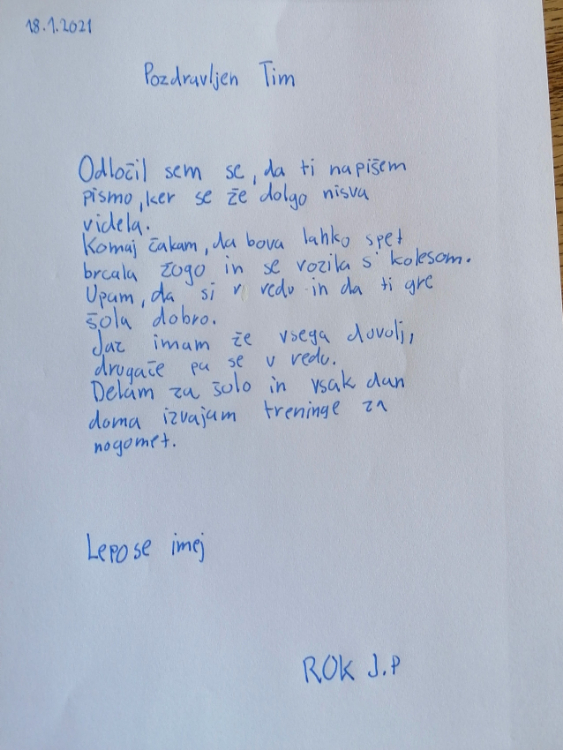 18.1.2021
Pozdravljen Tim
Odločil sem se, da ti napišem
pismo, ker se že dolgo nisva
videla.
Komaj čakam, da bova lahko spet
brcala žogo in se vozila s kolesom.
Upam, da si v redu in da ti gre
šola dobro.
Jaz imam že vsega dovolj,
drugače pa se v redu.
Delam za šolo in vsak dan
doma izvajam treninge za
nogomet.
Lepo se imej
ROK J.P